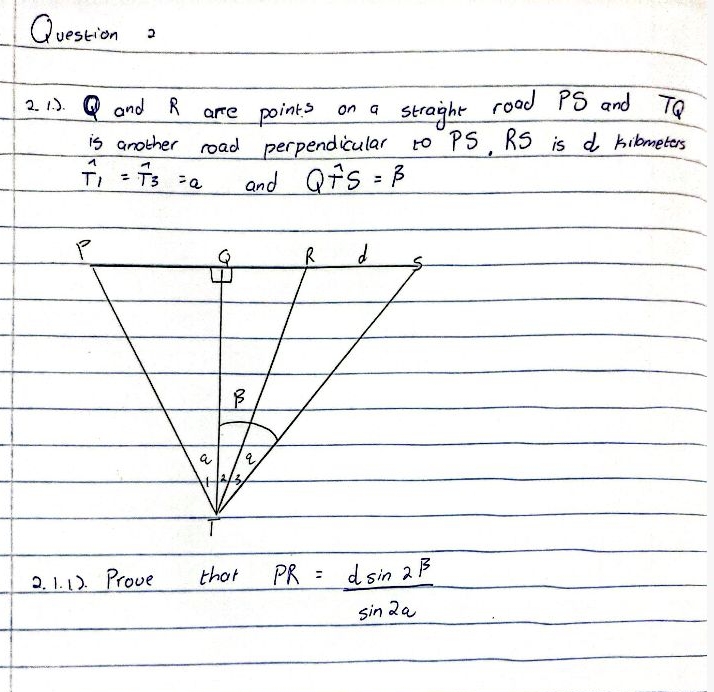 Question 2
2.1). Q and R are points on a straight road PS and TQ
is another road perpendicular to PS, RS is d kilometers
T̂₁ = T̂₃ = a and QT̂S = β
P Q R d S
β
a a
1 2 3
T
2.1.1). Prove that PR = d sin 2β
sin 2a